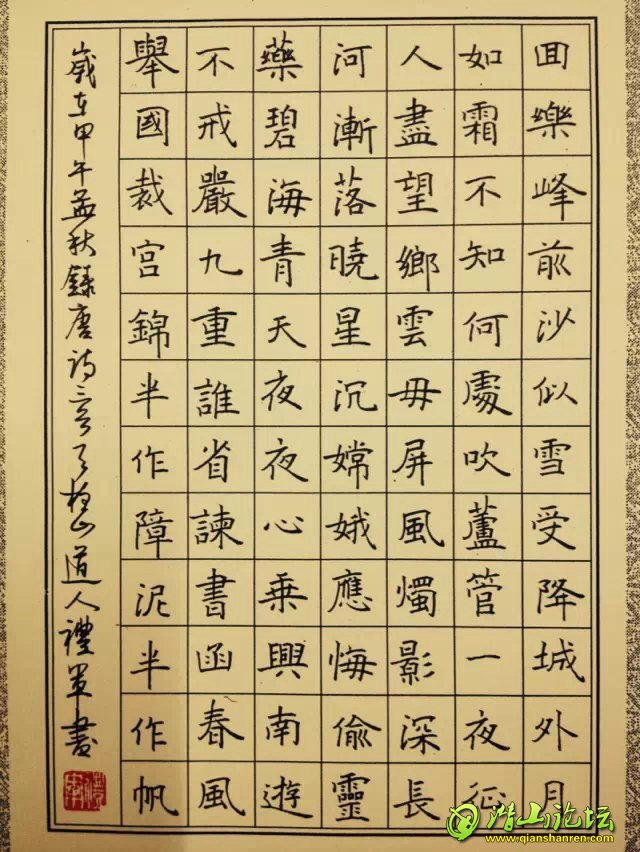 回樂峰前沙似雪受降城外月
如霜不知何處吹蘆管一夜征
人盡望鄉雲毋屏風燭影深長
河漸落曉星沉嫦娥應悔偷靈
藥碧海青天夜夜心乘興南遊
不戒嚴九重誰省諫書函春風
舉國裁宮錦半作障泥半作帆
歲在甲午孟秋錄唐詩三首山道人禮軍書
潜山论坛
www.qianshanren.com